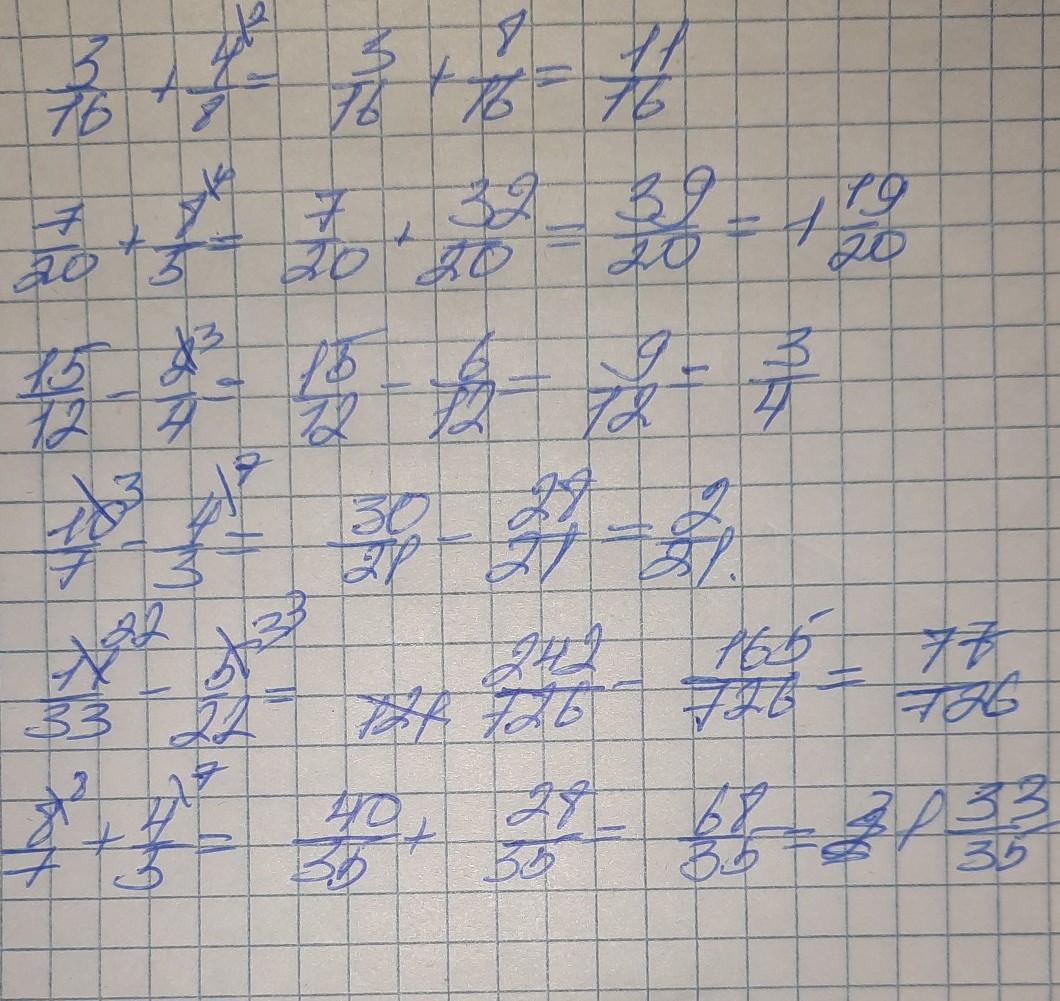 3/16 + 4\2/8 = 3/16 + 8/16 = 11/16
7/20 + 8\4/5 = 7/20 + 32/20 = 39/20 = 1 19/20
15/12 - 2\3/4 = 15/12 - 6/12 = 9/12 = 3/4
10\3/7 - 4\7/3 = 30/21 - 28/21 = 2/21.
11\22/33 - 5\33/22 = 242/726 - 165/726 = 77/726
8\5/7 + 4\7/5 = 40/35 + 28/35 = 68/35 = 1 33/35